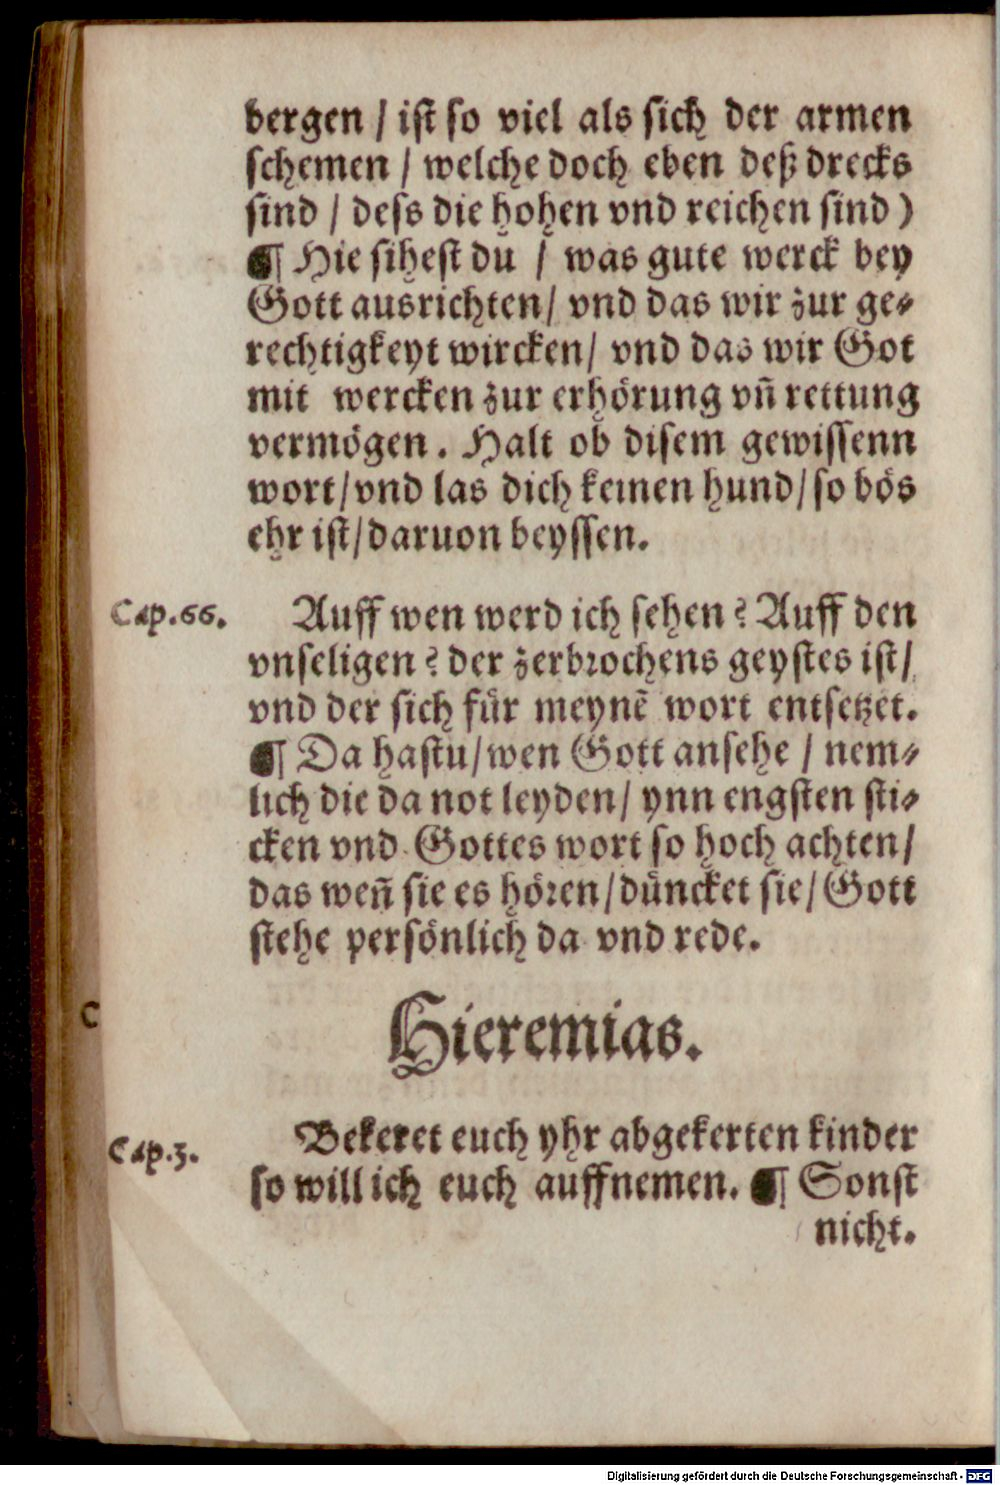 bergen / ist so viel als sich der armen
schemen / welche doch eben deß drecks
sind / dess die hohen vnd reichen sind )
¶ Hie sihest du / was gute werck bey
Gott ausrichten / vnd das wir zur ge⸗
rechtigkeyt wircken / vnd das wir Got
mit wercken zur erhörung vñ rettung
vermögen. Halt ob disem gewissenn
wort / vnd las dich keinen hund / so bös
ehr ist / daruon beyssen.
Cap.66. Auff wen werd ich sehen? Auff den
vnseligen? der zerbrochens geystes ist /
vnd der sich für meynẽ wort entsetzet.
¶ Da hastu / wen Gott ansehe / nem⸗
lich die da not leyden / ynn engsten sti⸗
cken vnd Gottes wort so hoch achten /
das weñ sie es hören / düncket sie / Gott
stehe persönlich da vnd rede.
C
Hieremias.
Cap.3. Bekeret euch yhr abgekerten kinder
so will ich euch auffnemen. ¶ Sonst
nicht.
Digitalisierung gefördert durch die Deutsche Forschungsgemeinschaft - DFG